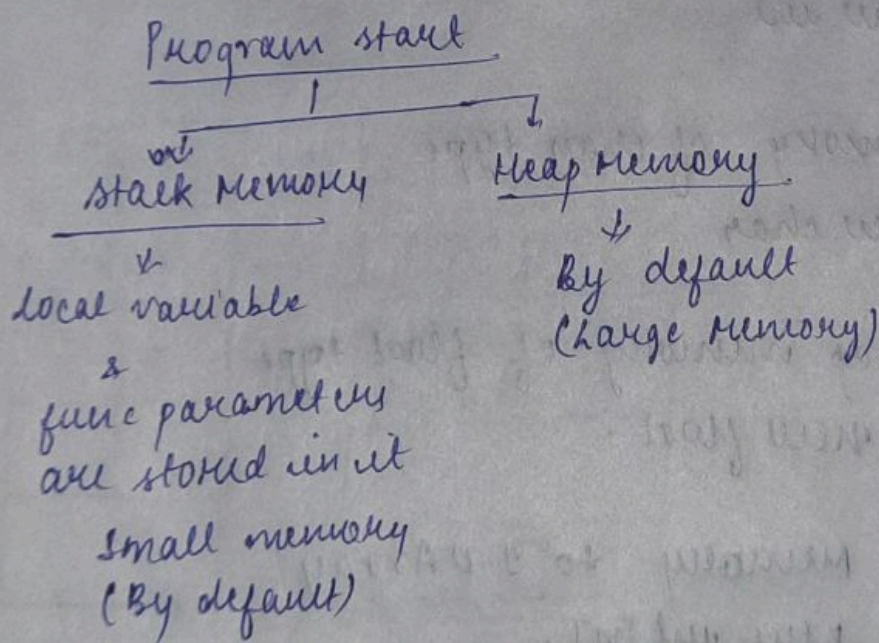 Program start
Stack Memory
Heap Memory
Local variable
&
func parameters
are stored in it
Small memory
(By default)
By default
(Large Memory)